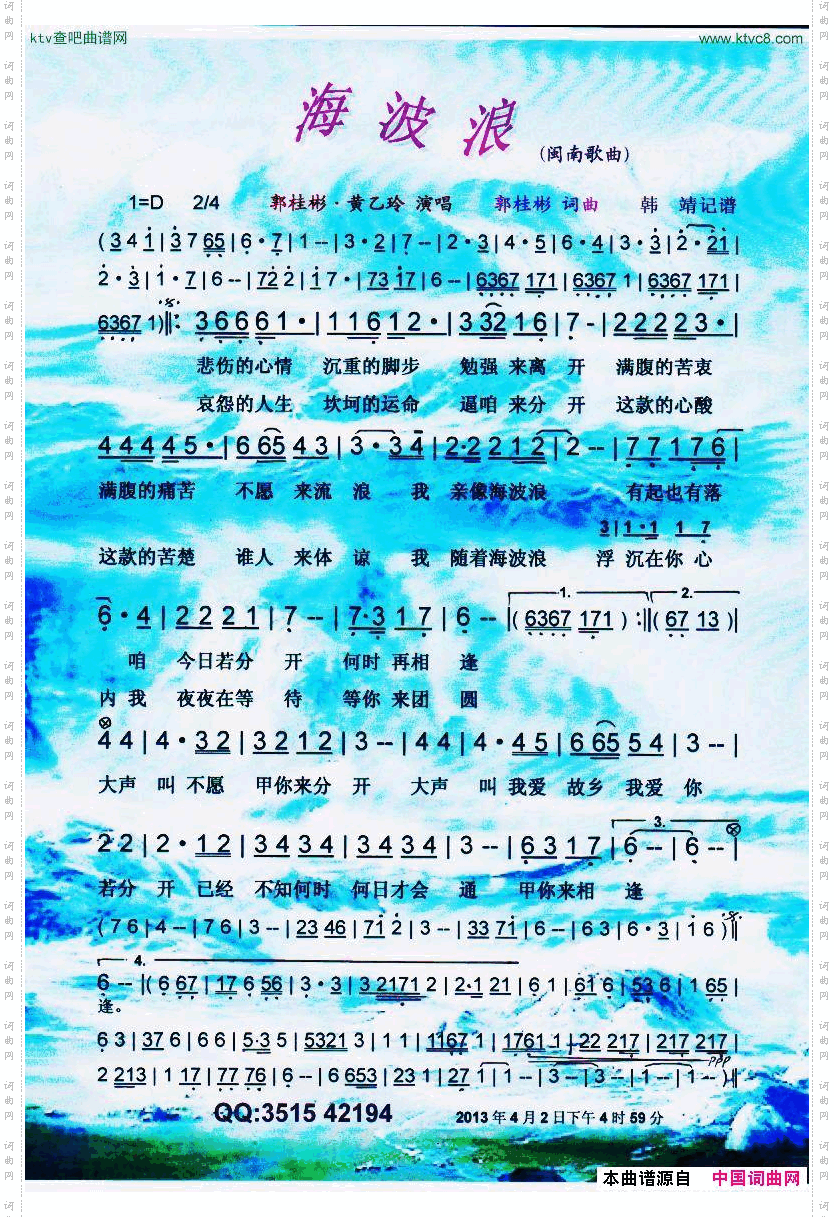 ktv查吧曲谱网 www.ktvc8.com
海波浪
(闽南歌曲)
1=D 2/4 郭桂彬·黄乙玲 演唱 郭桂彬 词曲 韩 靖记谱
(3 4 1|3 7 65|6·7|1--|3·2|7--|2·3|4·5|6·4|3·3|2·21|
2·3|1·7|6--|72 2|1 7·|73 17|6--|6367 171|6367 1|6367 171|
6367 1)‖: 3 6 6 6 1·|1 1 6 1 2·|3 32 1 6|7 -|2 2 2 2 3·|
悲伤的心情 沉重的脚步 勉强 来离 开 满腹的苦衷
哀怨的人生 坎坷的运命 逼咱 来分 开 这款的心酸
4 4 4 4 5·|6 65 4 3|3·3 4|2·2 2 1 2|2--|7 7 1 7 6|
满腹的痛苦 不愿 来流 浪 我 亲像海波浪 有起也有落
3|1·1 1 7
这款的苦楚 谁人 来体 谅 我 随着海波浪 浮 沉在你 心
1. 2.
6·4|2 2 2 1|7--|7·3 1 7|6--|(6367 171):‖(67 13)|
咱 今日若分 开 何时 再相 逢
内 我 夜夜在等 待 等你 来团 圆
4 4|4·3 2|3 2 1 2|3--|4 4|4·4 5|6 65 5 4|3--|
大声 叫 不愿 甲你来分 开 大声 叫 我爱 故乡 我爱 你
3.
2 2|2·1 2|3 4 3 4|3 4 3 4|3--|6 3 1 7|6--|6--|
若分 开 已经 不知何时 何日才会 通 甲你来相 逢
(7 6|4--|7 6|3--|23 46|71 2|3--|33 71|6--|6 3|6·3|1 6)‖
4.
6--|(6 67|17 6 56|3·3|3 2171 2|2·1 21|6 1|61 6|53 6|1 65|
逢。
6 3|37 6|6 6|5·3 5|5321 3|1 1|1167 1|1761 1|22 217|217 217|
ppp
2 213|1 17|77 76|6--|6 653|23 1|27 1|1--|3--|3--|1--|1--)‖
QQ:3515 42194 2013年4月2日下午4时59分
本曲谱源自 中国词曲网